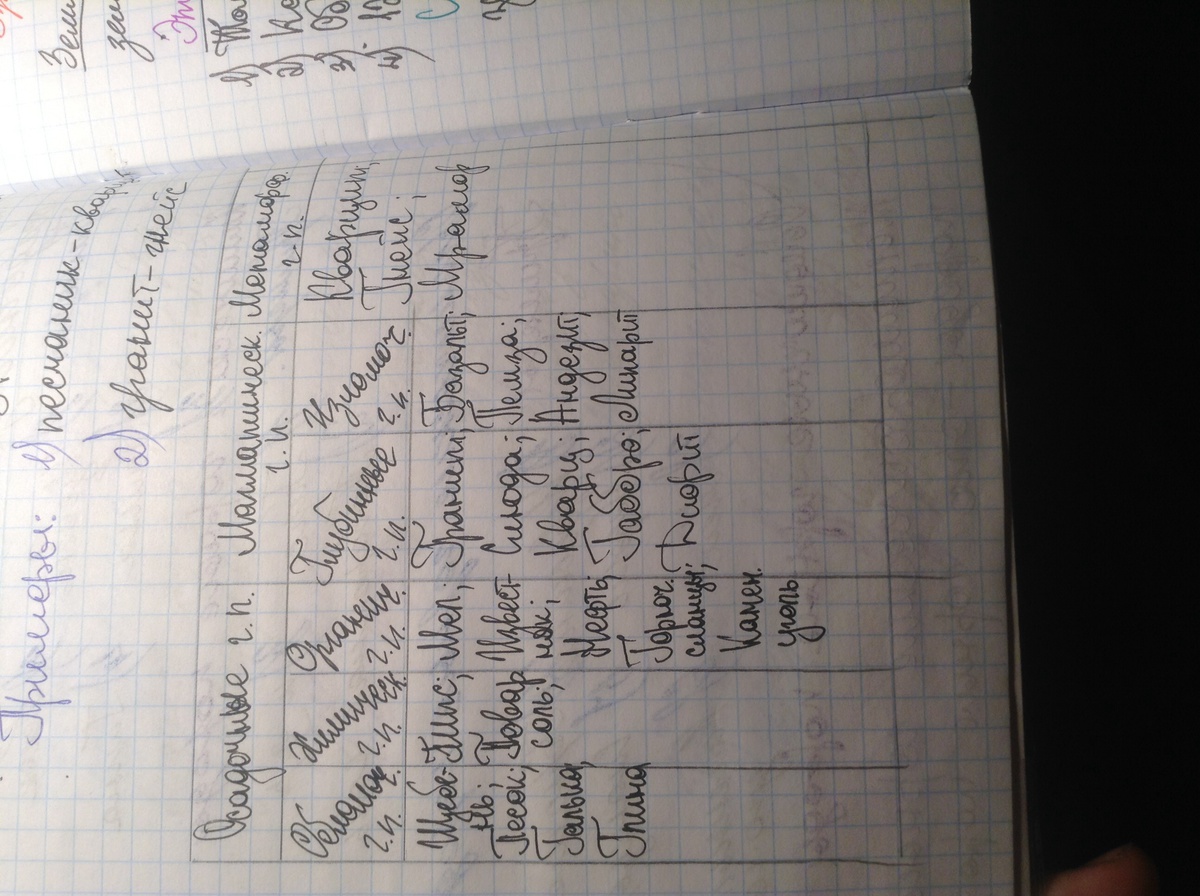 Примеры: 1) песчаник-кварцит
2) гранит-гнейс
Осадочные г.п. Магматическ. г.п. Метаморф. г.п.
Обломоч г.п. Химическ г.п. Органич г.п. Глубинные г.п. Излиоч г.п.
Щебе-
нь;
Песок;
Галька;
Глина
Гипс;
Повар
соль;
Мел;
Извест-
няк;
Нефть;
Горюч.
сланцы;
Камен.
уголь
Гранит;
Слюда;
Кварц;
Габбро;
Диорит
Базальт;
Пемза;
Андезит;
Липарит
Кварцит;
Гнейс;
Мрамор
Зем
зем
Эт
1)
2) Ко
3) Об
4)